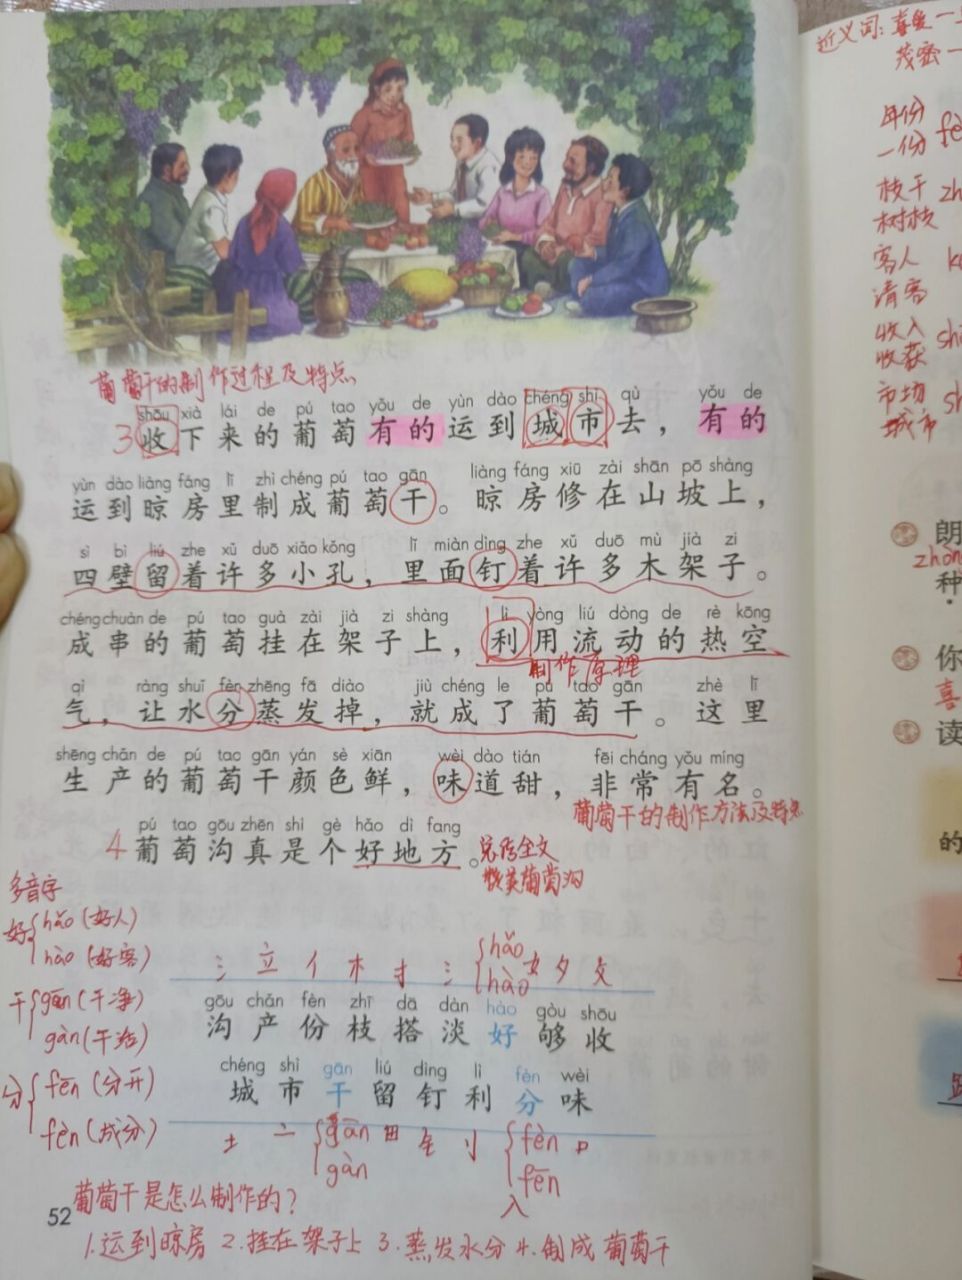 葡萄干的制作过程及特点
shōu xià lái de pú tao yǒu de yùn dào chéng shì qù yǒu de
3 收下来的葡萄有的运到城市去，有的
yùn dào liàng fáng lǐ zhì chéng pú tao gān liàng fáng xiū zài shān pō shàng
运到晾房里制成葡萄干。晾房修在山坡上，
sì bì liú zhe xǔ duō xiǎo kǒng lǐ miàn dìng zhe xǔ duō mù jià zi
四壁留着许多小孔，里面钉着许多木架子。
chéng chuàn de pú tao guà zài jià zi shàng lì yòng liú dòng de rè kōng
成串的葡萄挂在架子上，利用流动的热空
制作原理
qì ràng shuǐ fèn zhēng fā diào jiù chéng le pú tao gān zhè lǐ
气，让水分蒸发掉，就成了葡萄干。这里
shēng chǎn de pú tao gān yán sè xiān wèi dào tián fēi cháng yǒu míng
生产的葡萄干颜色鲜，味道甜，非常有名。
葡萄干的制作方法及特点
pú tao gōu zhēn shì gè hǎo dì fang
4 葡萄沟真是个好地方。
总结全文
赞美葡萄沟
多音字
好 hǎo (好人)
hào (好客)
干 gān (干净)
gàn (干活)
分 fēn (分开)
fèn (成分)
氵 立 亻 木 扌 氵 hǎo 女 夕 攵
hào
gōu chǎn fèn zhī dā dàn hào gòu shōu
沟 产 份 枝 搭 淡 好 够 收
chéng shì gān liú dìng lì fèn wèi
城 市 干 留 钉 利 分 味
土 亠 gān 田 钅 刂 fèn 口
gàn fēn
入
葡萄干是怎么制作的？
52
1.运到晾房 2.挂在架子上 3.蒸发水分 4.制成葡萄干
近义词：喜爱一
茂密一
年份
一份
枝干
树枝
客人
请客
收入
收获
市场
城市
朗
zhòng
种
你
喜
读
的